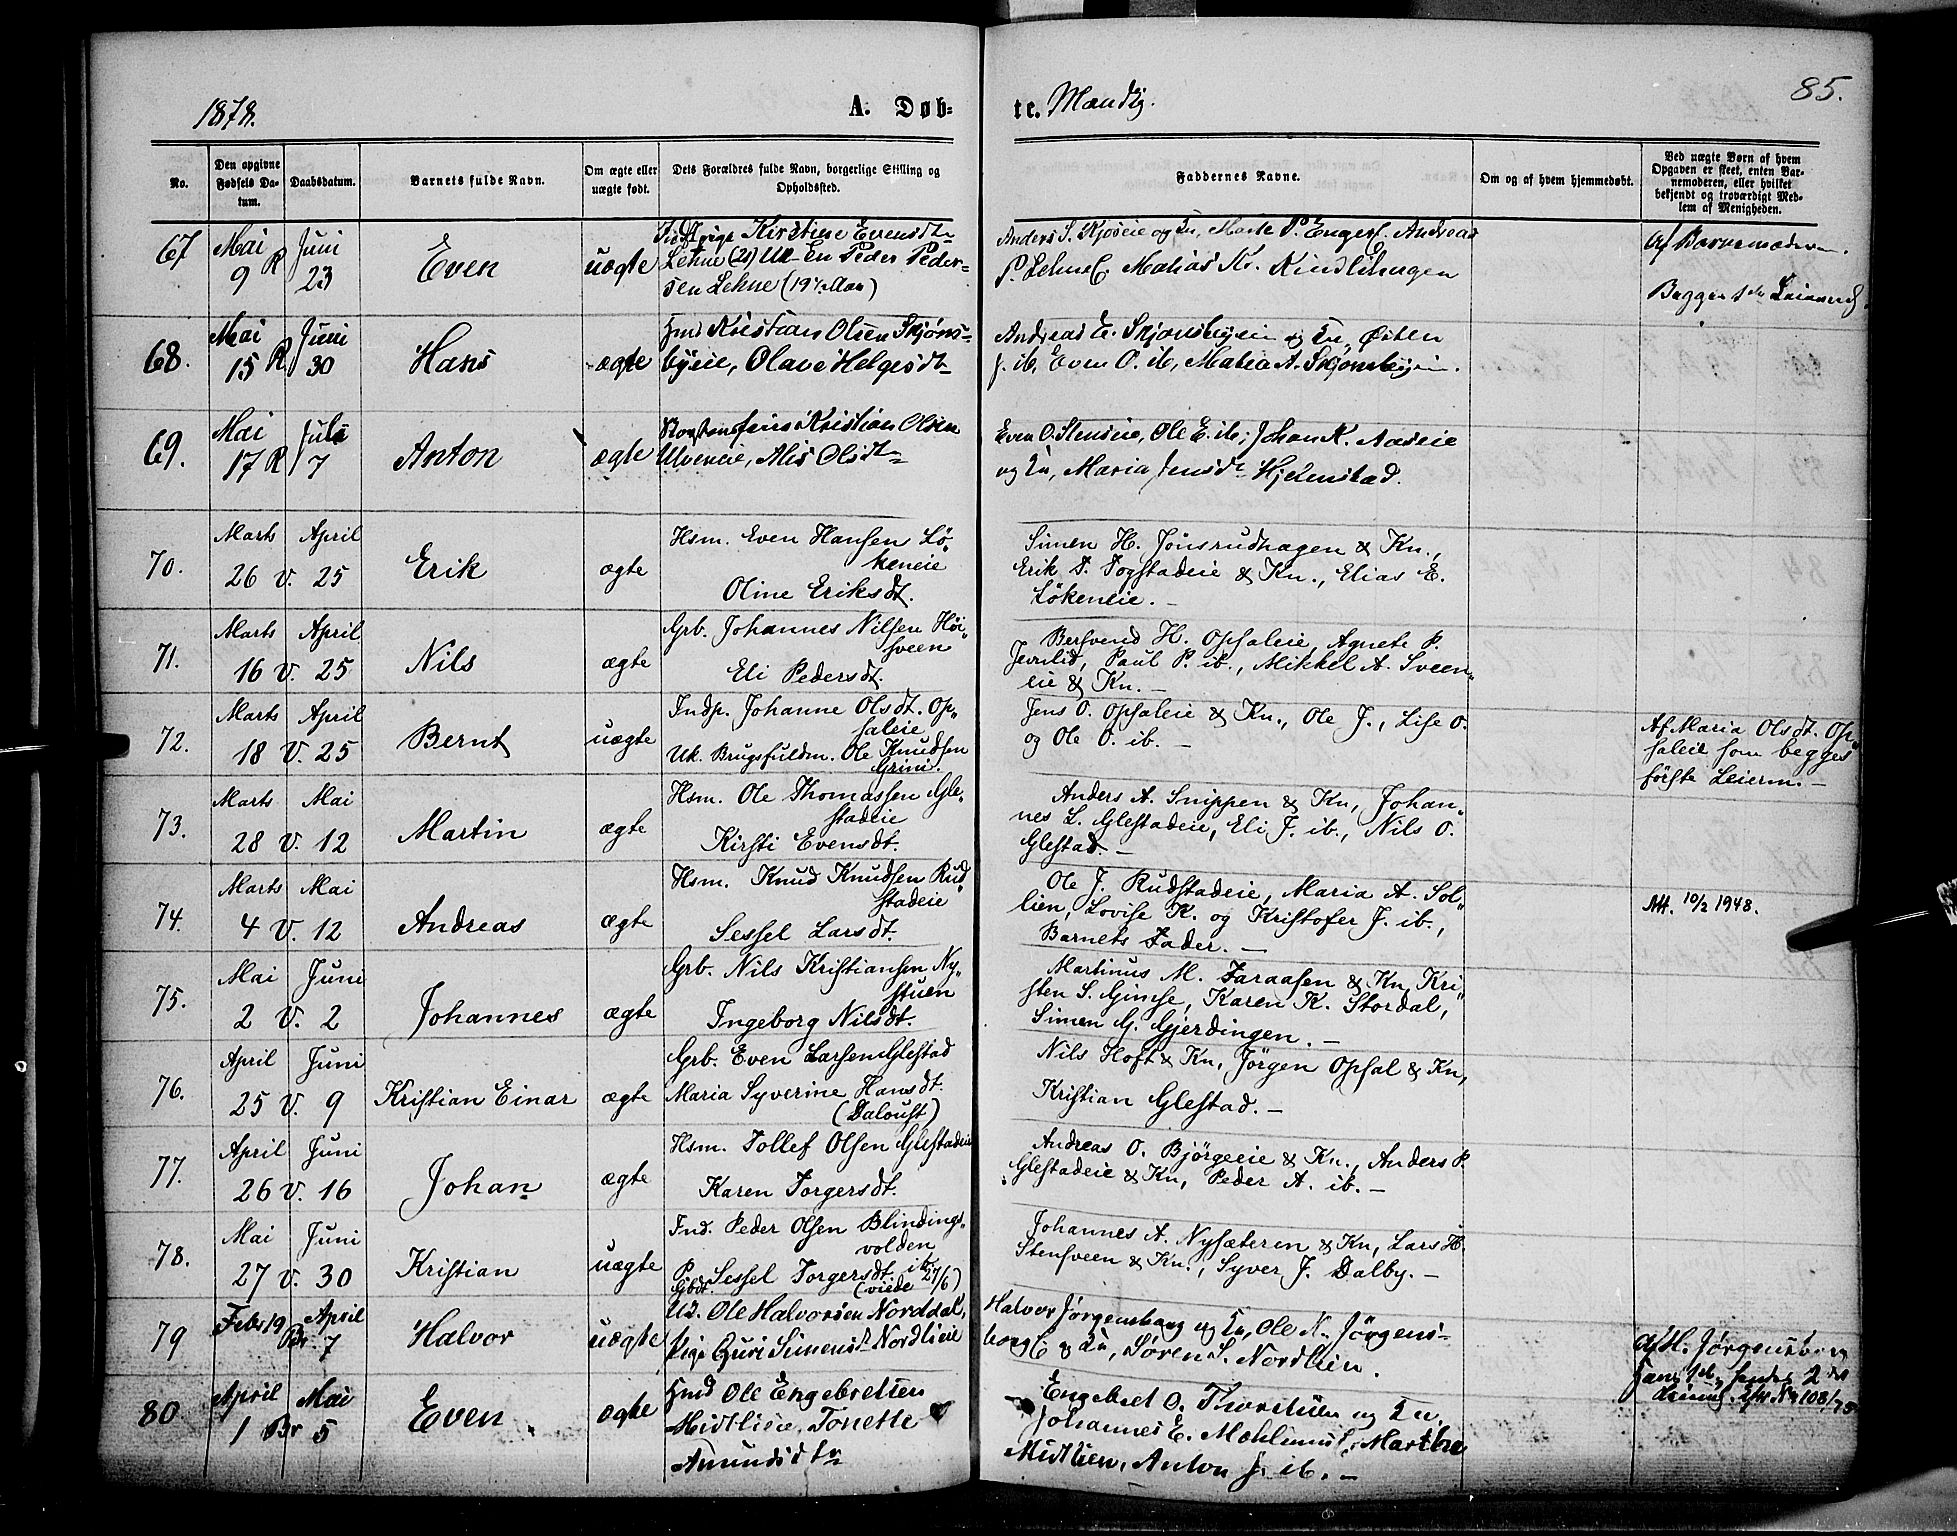 1878.
A. Døb-
te. Mandkj.
85.
No.
Den opgivne
Fødsels Da-
tum.
Daabsdatum.
Barnets fulde Navn.
Om ægte eller
uægte født.
Dets Forældres fulde Navn, borgerlige Stilling og
Opholdssted.
Faddernes Navne.
Om og af hvem hjemmedøbt.
Ved uægte Børn af hvem
Opgaven er skeet, enten Bar-
nemoderen, eller hvilket
bekjendt og troværdigt Med-
lem af Menigheden.
67
Mai
9 R
Juni
23
Even
uægte
Kirstine Evensdt
Lehne (21) Uk En Peder Peder-
sen Lehne (19½ Aar)
Anders S. Kjøseie og Kn, Marte P. Enger, Andreas
P. Lehne, Matias Kr. Kindlihagen
Af Barnemoderen.
Begges 1ste Leierm
68.
Mai
15 R
Juni
30
Hans
ægte
Hmd Kristian Olsen Skjøns-
byeie, Olave Helgesdt
Andreas E. Skjønsbyeie og Kn, Østen
J. ib, Even O. ib, Matea A. Skjønsbyeie.
69.
Mai
17 R
Juli
7
Anton
ægte
Kristian Olsen
Ulveneie, Alis Olsdt
Even O. Stenseie, Ole E. ib, Johan K. Aaseie
og Kn, Maria Jensdt Hjelmstad.
70.
Marts
26 V.
April
25
Erik
ægte
Hsm. Even Hansen Lö-
keneie
Oline Eriksdt.
Simen H. Jönsrudhagen & Kn.,
Erik T. Fogstadeie & Kn., Elias E.
Lökeneie. —
71.
Marts
16 V.
April
25
Nils
ægte
Grb. Johannes Nilsen Höi-
sveen
Eli Pedersdt.
Bersvend H. Opsaleie, Agnete P.
Jevnlid, Paul P. ib., Mikkel A. Sveen-
eie & Kn. —
72.
Marts
18 V.
April
25
Bernt
uægte
Indp. Johanne Olsdt. Op-
saleie
Uk. Brugsfuldm. Ole Knudsen
Grini.
Jens O. Opsaleie & Kn., Ole J., Lise O.
og Ole O. ib. —
Af Maria Olsdt. Op-
saleie som begges
förste Leierm. —
73.
Marts
28 V.
Mai
12
Martin
ægte
Hsm. Ole Thomassen Gle-
stadeie
Kirsti Evensdt.
Anders A. Snippen & Kn, Johan-
nes L. Glestadeie, Eli J. ib., Nils O.
Glestad. —
74.
Marts
4 V.
Mai
12
Andreas
ægte
Hsm. Knud Knudsen Rud-
stadeie
Sessel Larsdt.
Ole J. Rudstadeie, Maria A. Sol-
lien, Lovise K. og Kristofer J. ib.,
Barnets Fader. —
Att. 10/2 1948.
75.
Mai
2 V.
Juni
2
Johannes
ægte
Grb. Nils Kristiansen Ny-
stuen
Ingeborg Nilsdt.
Martinus M. Faraasen & Kn, Kri-
sten S. Gimse, Karen K. Stordal,
Simen G. Gjerdingen. —
76.
April
25 V.
Juni
9
Kristian Einar
ægte
Grb. Even Larsen Glestad
Maria Syverine Hansdt.
(Daloust)
Nils Hoft & Kn, Jörgen Opsal & Kn,
Kristian Glestad. —
77.
April
26 V.
Juni
16
Johan
ægte
Hsm. Tollef Olsen Glestadeie
Karen Torgersdt.
Andreas O. Björgeeie & Kn., Anders P.
Glestadeie & Kn, Peder A. ib. —
78.
Mai
27 V.
Juni
30
Kristian
uægte
Ind. Peder Olsen Blindings-
volden
P. Sessel Torgersdt. ib.
Gbdt. (viede 27/6)
Johannes A. Nysæteren & Kn, Lars H.
Stensveen & Kn., Syver J. Dalby. —
79
Febr 19
Br.
April
7
Halvor
uægte
Uk. Ole Halvorsen Norddal,
Pige Guri Simensdt Nordlieie
Halvor Jørgensbang og Kn, Ole N. Jörgens-
bang og Kn, Søren S. Nordlien.
Af H. Jørgensberg
Hans 1ste, hendes 2den
Leierm. No 108/75
80
April
1 Br
Mai
5
Even
ægte
Hmd Ole Engebretsen
Midtlieie, Tonette
Amundsdtr
Engebret O. Thorstuen og Kn.
Johannes E. Mæhlum, Marthe
Midtlien, Anton J. ib. —